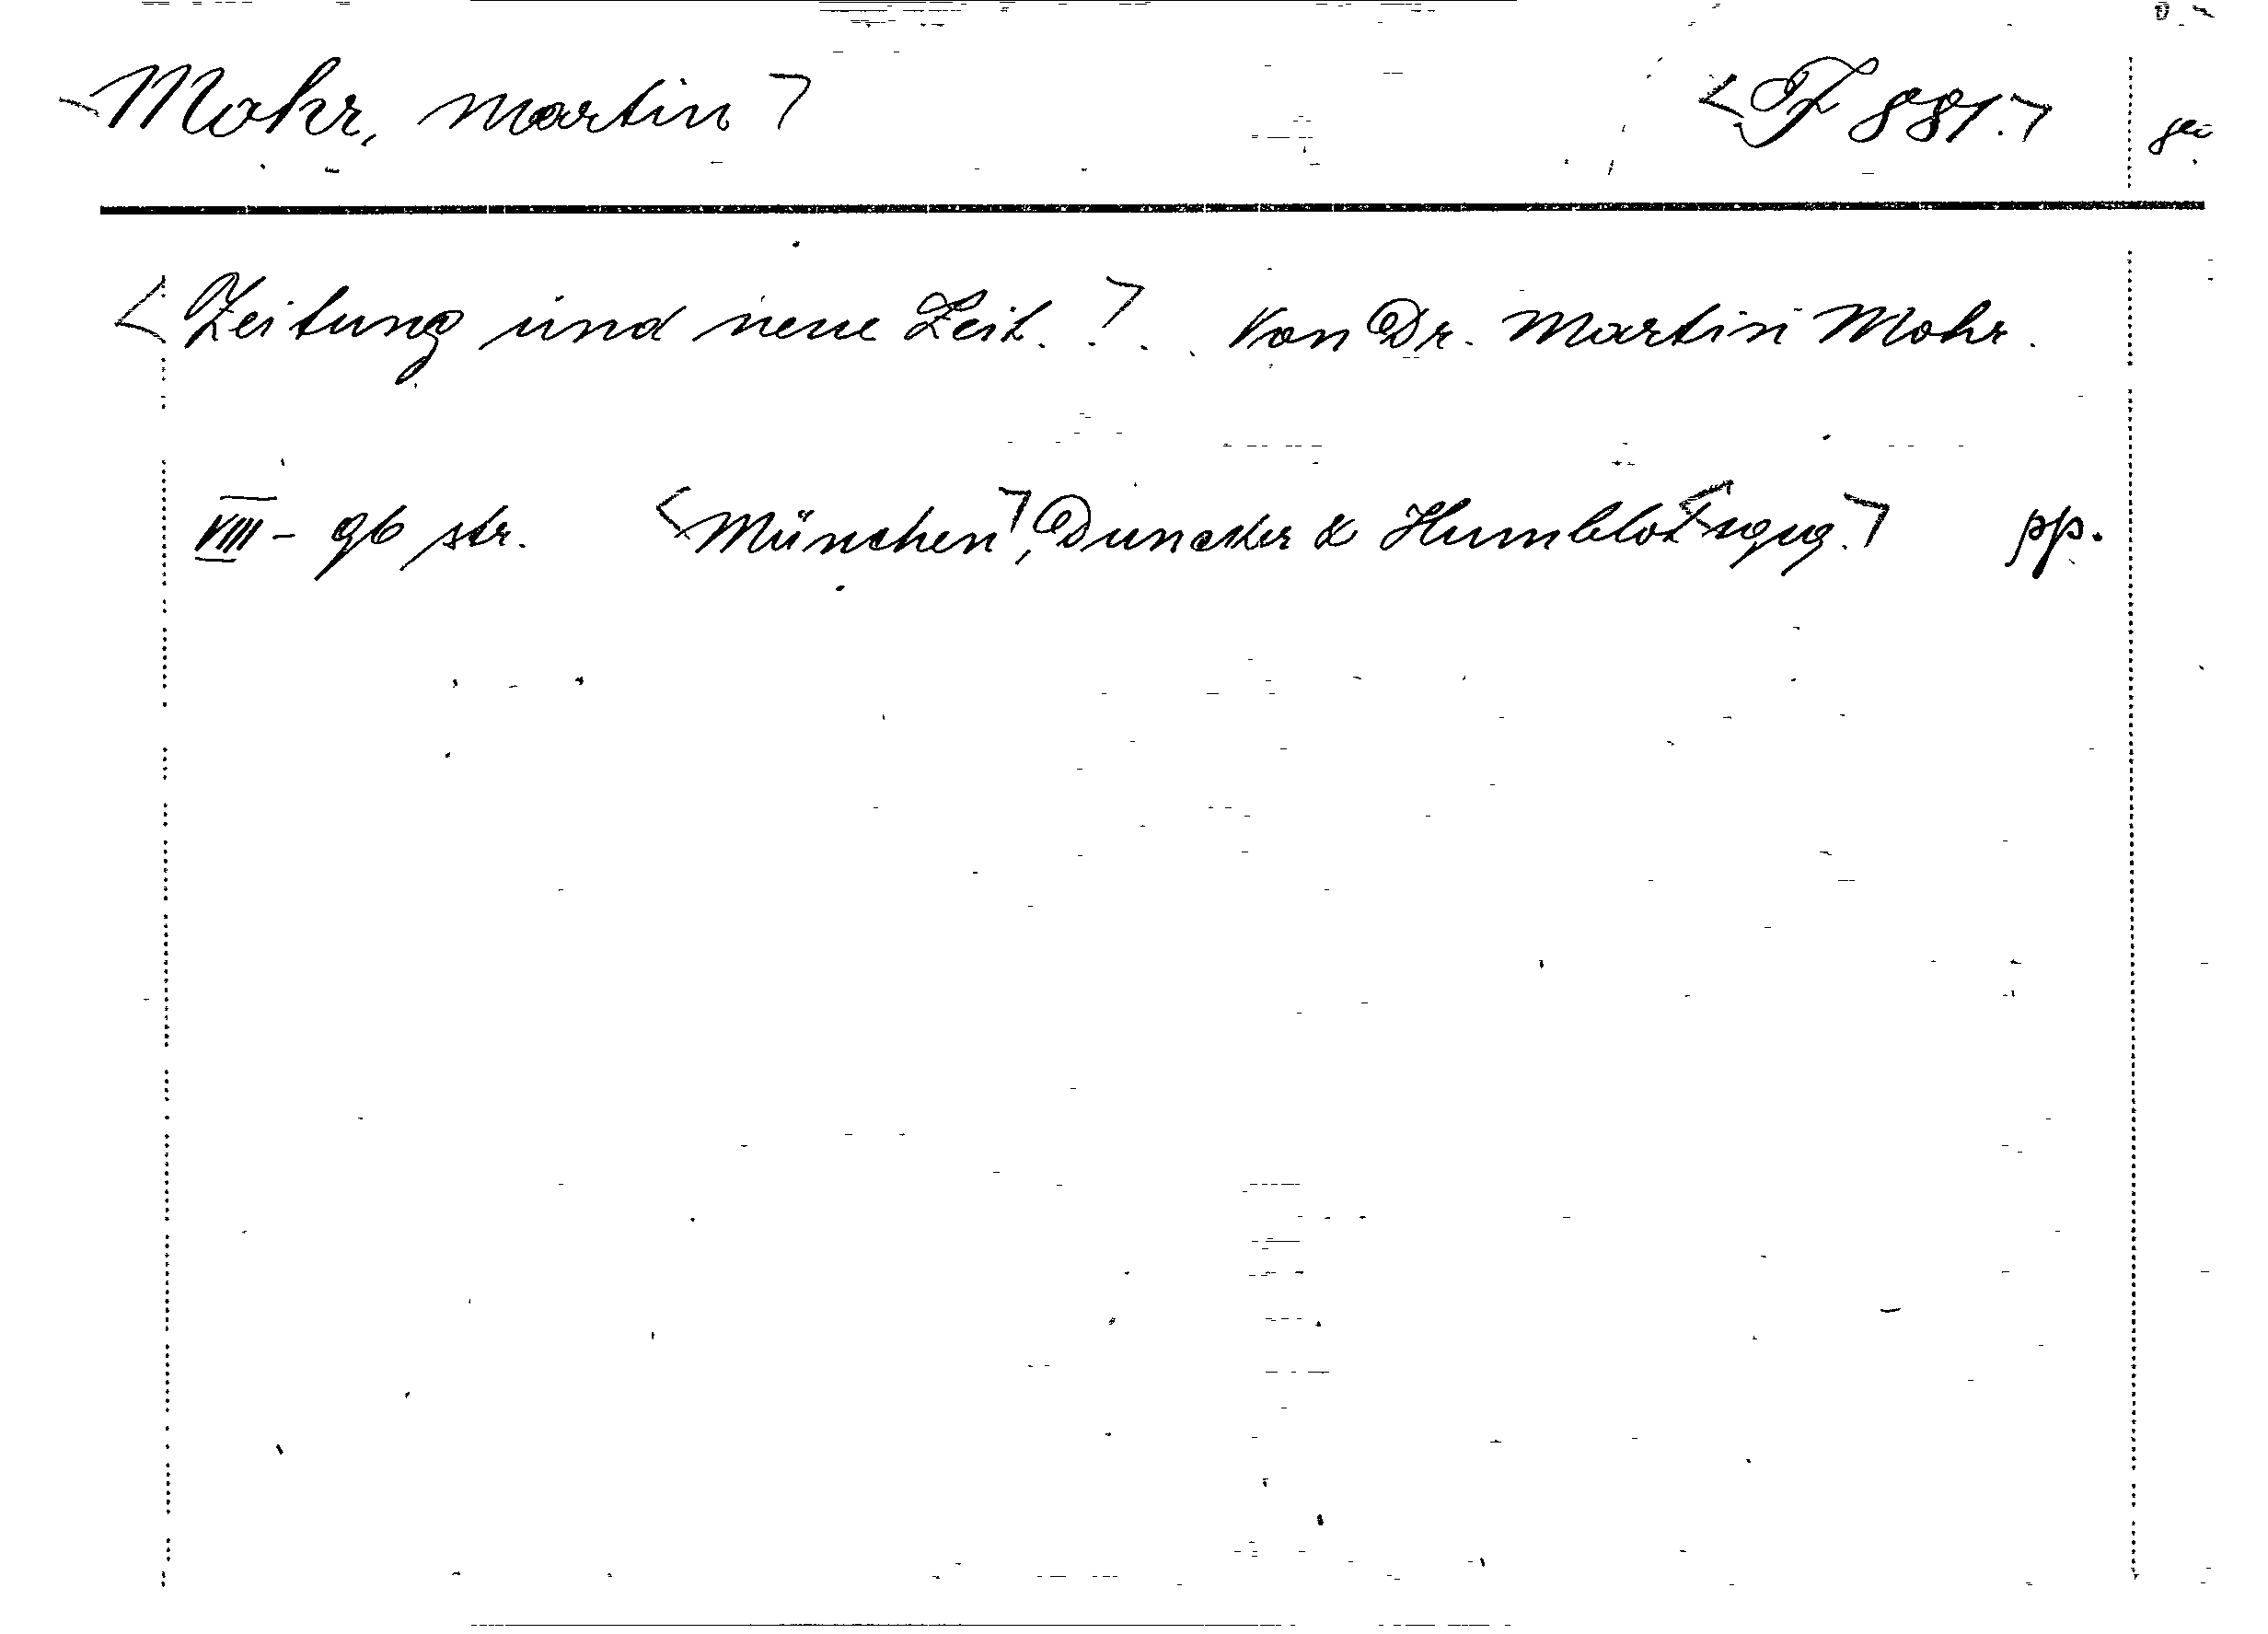 <Mohr, Martin> <F 881.>
<Zeitung und neue Zeit.> . . Von Dr. Martin Mohr.
VIII - 96 str. <München>, Duncker & Humblot <1919.> pp.